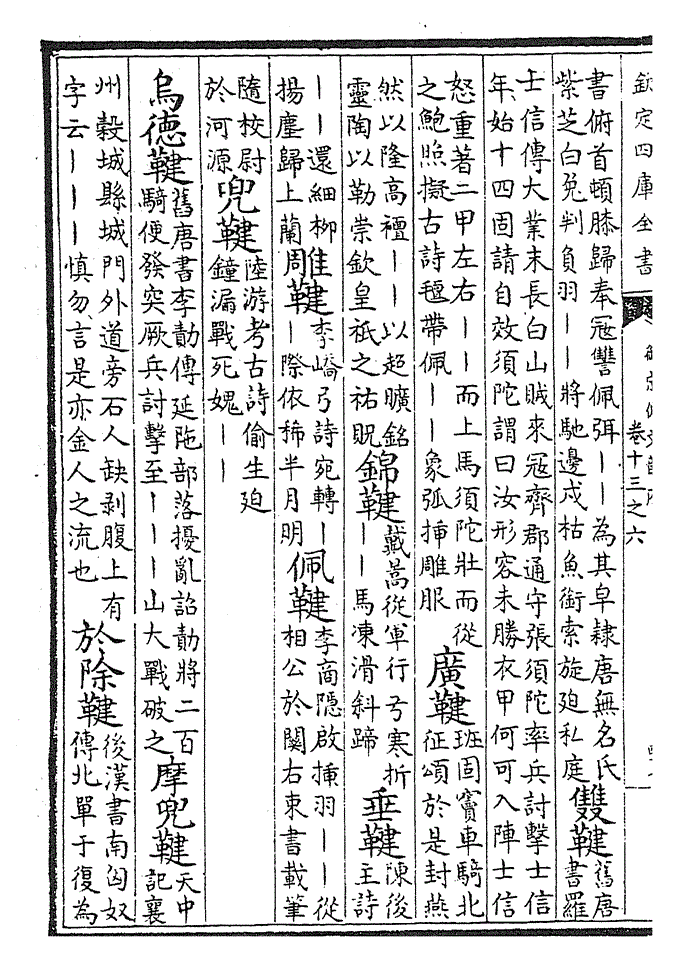 欽定四庫全書
卷十三之六
書俯首頓膝歸奉冦讐佩弭——為其皁隸唐無名氏
紫芝白兔判負羽——將馳邊戍枯魚銜索旋廹私庭
雙鞬
舊唐
書羅
士信傳大業末長白山賊來冦齊郡通守張須陀率兵討擊士信
年始十四固請自效須陀謂曰汝形容未勝衣甲何可入陣士信
怒重著二甲左右——而上馬須陀壯而從
之鮑照擬古詩氊帶佩——象弧揷雕服
廣鞬
班固竇車騎北
征頌於是封燕
然以隆高襢——以超曠銘
靈陶以勒崇欽皇祇之祐貺
錦鞬
戴暠從軍行弓寒折
——馬凍滑斜蹄
垂鞬
陳後
主詩
——還細柳
揚塵歸上蘭
雕鞬
李嶠弓詩宛轉—
—際依稀半月明
佩鞬
李商隱啟揷羽——從
相公於關右束書載筆
隨校尉
於河源
兜鞬
陸游考古詩偷生廹
鐘漏戰死媿——
烏德鞬
舊唐書李勣傳延陁部落擾亂詔勣將二百
騎便發突厥兵討擊至———山大戰破之
摩兜鞬
天中
記襄
州穀城縣城門外道旁石人缺剥腹上有
字云———慎勿言是亦金人之流也
於除鞬
後漢書南匈奴
傳北單于復為